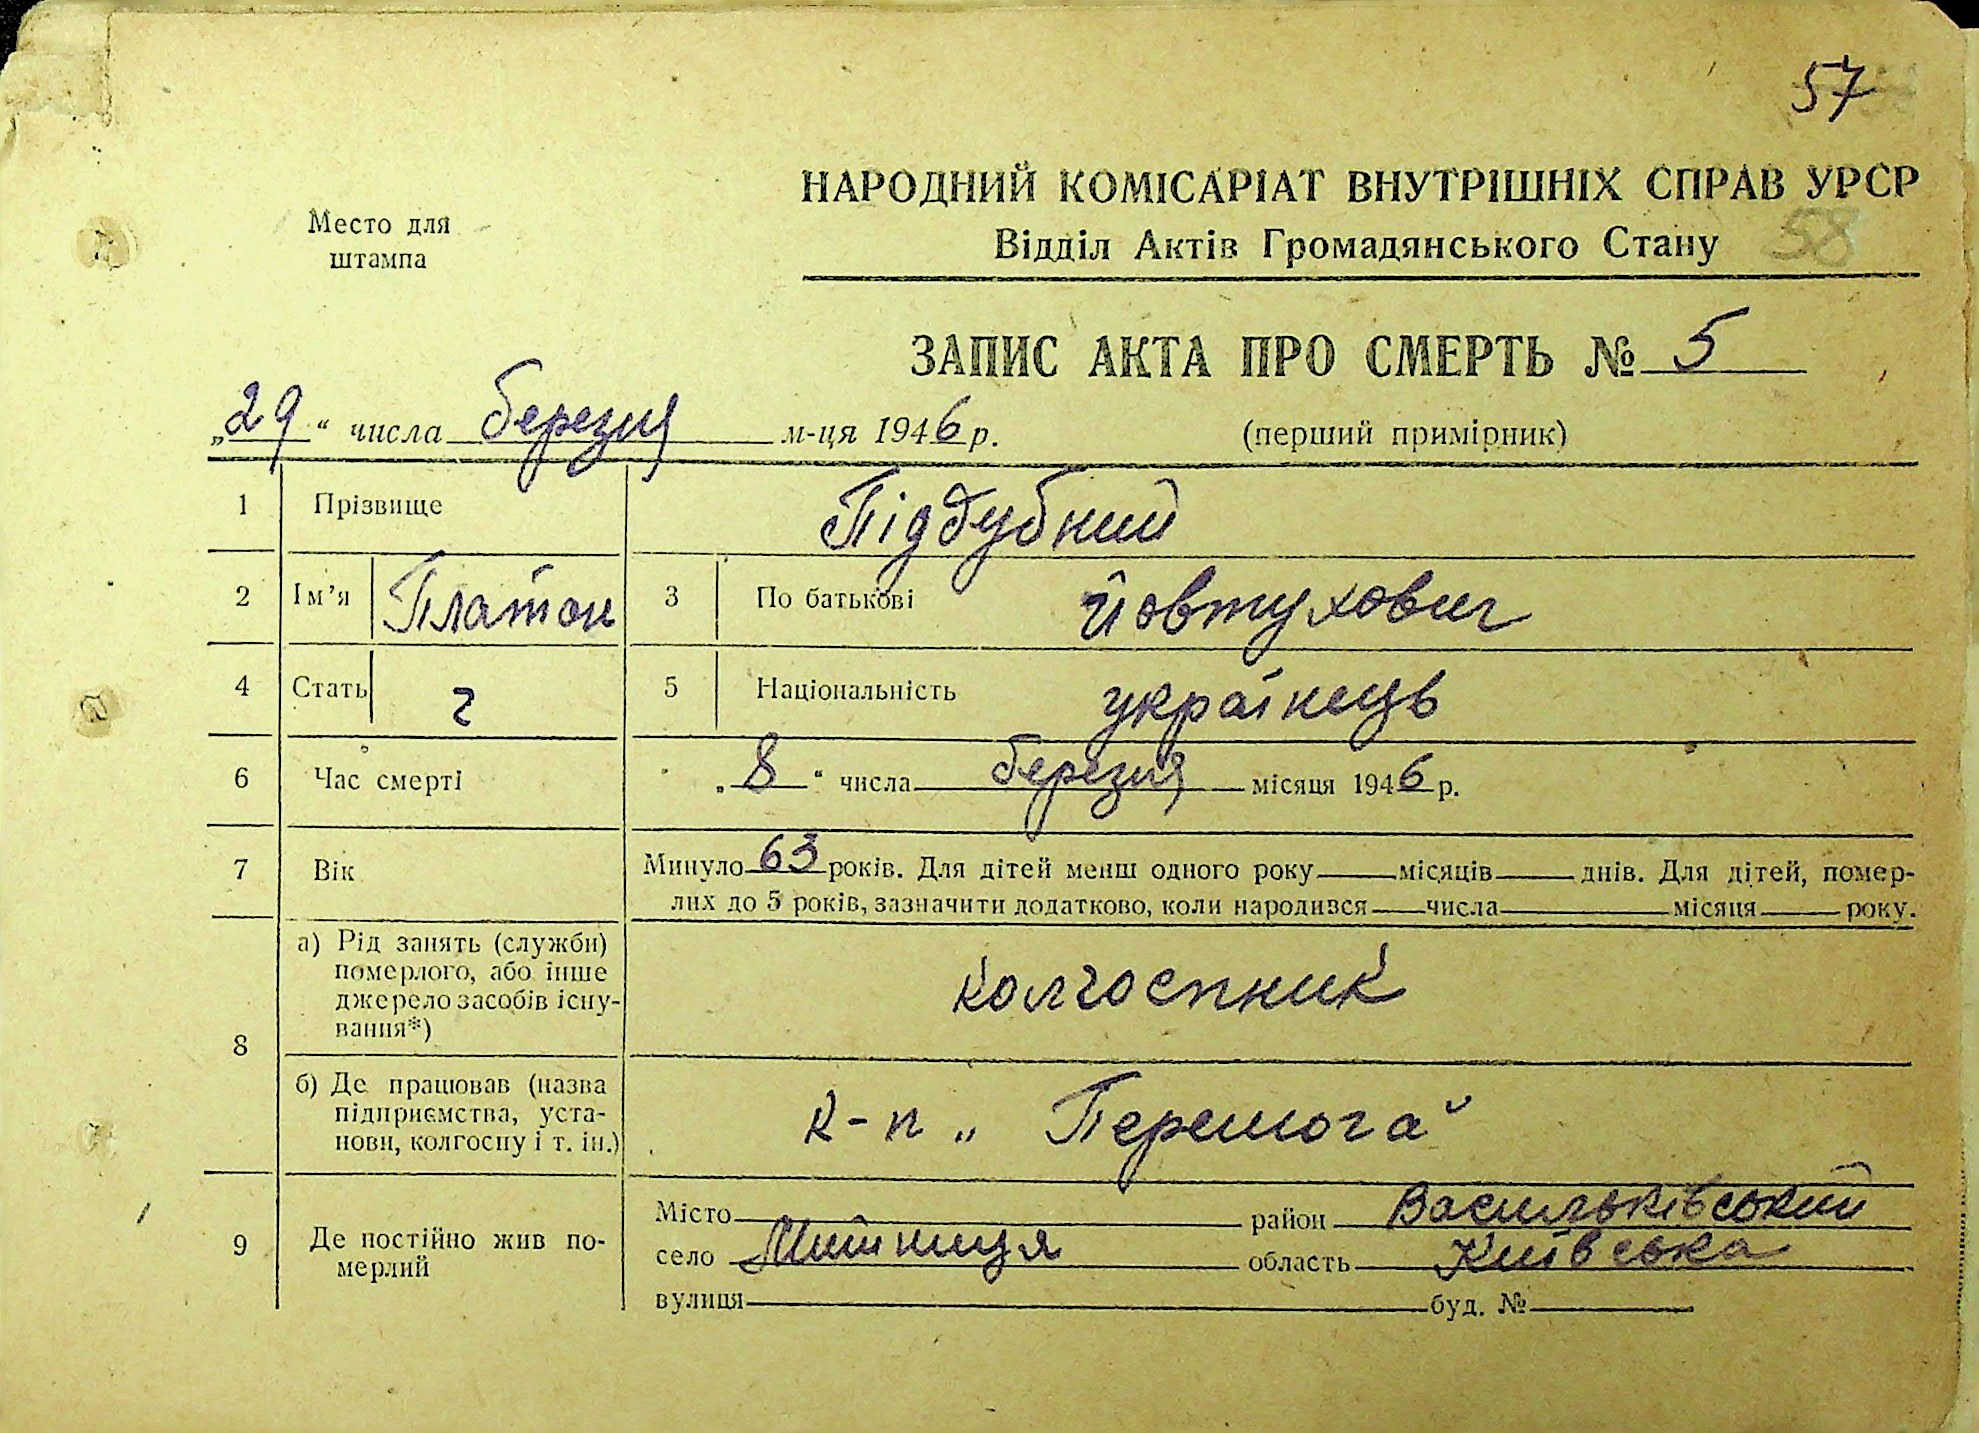 57
НАРОДНИЙ КОМІСАРІАТ ВНУТРІШНІХ СПРАВ УРСР
Место для
штампа
Відділ Актів Громадянського Стану 58
ЗАПИС АКТА ПРО СМЕРТЬ № 5
„29“ числа березня м-ця 1946 р. (перший примірник)
1 Прізвище Піддубний
2 Ім'я Платон 3 По батькові Йовтухович
4 Стать ч 5 Національність українець
6 Час смерті „8“ числа березня місяця 1946 р.
7 Вік Минуло 63 років. Для дітей менш одного року місяців днів. Для дітей, помер-
лих до 5 років, зазначити додатково, коли народився числа місяця року.
8 а) Рід занять (служби)
померлого, або інше
джерело засобів існу-
вання*)
колгоспник
б) Де працював (назва
підприємства, уста-
нови, колгоспу і т. ін.)
к-п „Перемога“
9 Де постійно жив по-
мерлий
Місто район Васильківський
село Митниця область Київська
вулиця буд. №